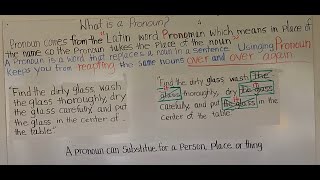 What is a Pronoun?
Pronoun comes from the "Latin word Pronomen which means in Place of
the name so the Pronoun takes the Place of the noun"
A Pronoun is a word that replaces a noun in a sentence. Using Pronoun
Keeps you from reapting the same nouns over and over again
"Find the dirty glass wash
the glass thoroughly, dry
the glass carefully, and put
the glass in the center of
the table"
"Find the dirty glass wash the
glass thoroughly, dry the glass
carefully, and put the glass in the
center of the table"
A pronoun can Substitute for a Person, Place or thing